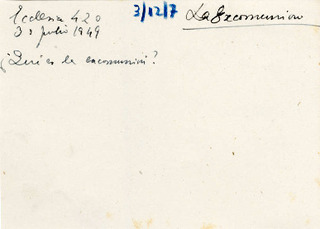 Ecclesia 420
3/12/7
La Excomunion
30 julio 1949
¿Qué es la excomunión?